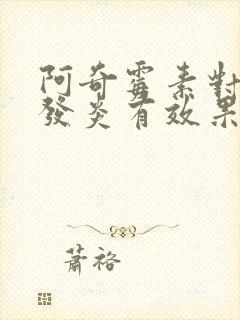 阿奇霉素對
發炎有效果
蕭裕